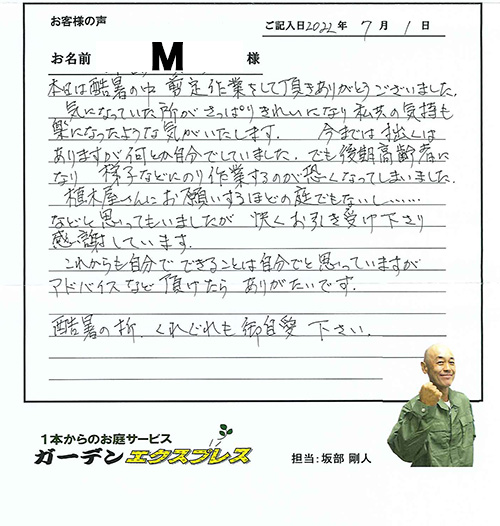 お客様の声
ご記入日2022年 7月 1日
お名前 M 様
本日は酷暑の中 剪定作業をして頂きありがとうございました.
気になっていた所がさっぱりきれいになり私共の気持も
楽になったような気がいたします. 今までは拙くは
ありますが何とか自分でしていました. でも後期高齢者に
なり 梯子などにのり作業するのが恐くなってしまいました.
植木屋さんにお願いするほどの庭でもないし……
などと思ってもいましたが 快くお引き受け下さり
感謝しています.
これからも自分で できることは自分でと思っていますが
アドバイスなど頂けたら ありがたいです.
酷暑の折. くれぐれも御自愛 下さい.
1本からのお庭サービス
ガーデンエクスプレス
担当:坂部 剛人